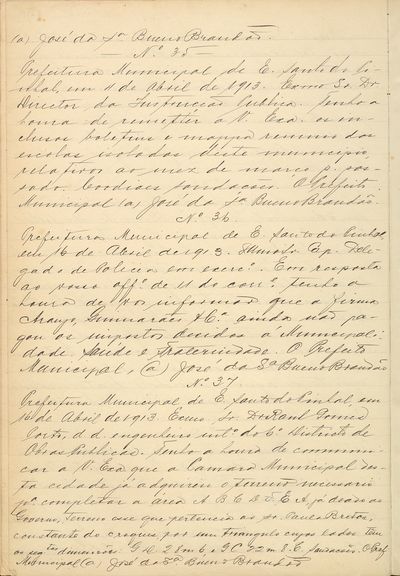 (a) José da Sª Bueno Brandão.
Nº 35
Prefeitura Municipal de E. Santo do Pi-
nhal, em 11 de Abril de 1913. Exmo Sr. Dr
Director da Instrucção Publica. Tenho a
honra de remetter a V. Exa. os in-
clusos boletins e mappa resumo das
escolas isoladas deste municipio,
relativos ao mez de março p. pas-
sado. Cordiaes saudações. O Prefeito
Municipal (a) José da Sª Bueno Brandão.
Nº 36
Prefeitura Municipal de E. Santo do Pinhal,
em 16 de Abril de 1913. Illmo Sr. Dele-
gado de Policia em exerc.º. Em resposta
ao vosso offº de 11 do corrº. tenho a
honra de vos informar que a firma
Araujo, Guimarães & Cª ainda não pa-
gou os impostos devidos á Municipali-
dade. Saude e Fraternidade. O Prefeito
Municipal, (a) José da Sª Bueno Brandão
Nº 37
Prefeitura Municipal de E. Santo do Pinhal em
16 de Abril de 1913. Exmo. Sr. Dr Raul Gomes
Porto, d. d. engenheiro intº do 6º Districto de
Obras Publicas. Tenho a honra de communi-
car a V. Exa que a Camara Municipal des-
ta cidade já adquiriu o terreno necessario
pª completar a área A B C D E A já doada ao
Governo, terreno esse que pertencia ao sr. Paula Bretas,
constante do croquis por um triangulo cujos lados tem
as dimensões: G C 28 m E, G C 22 m 8. E. Saudações. O Pref.
Municipal (a) José da Sª Bueno Brandão